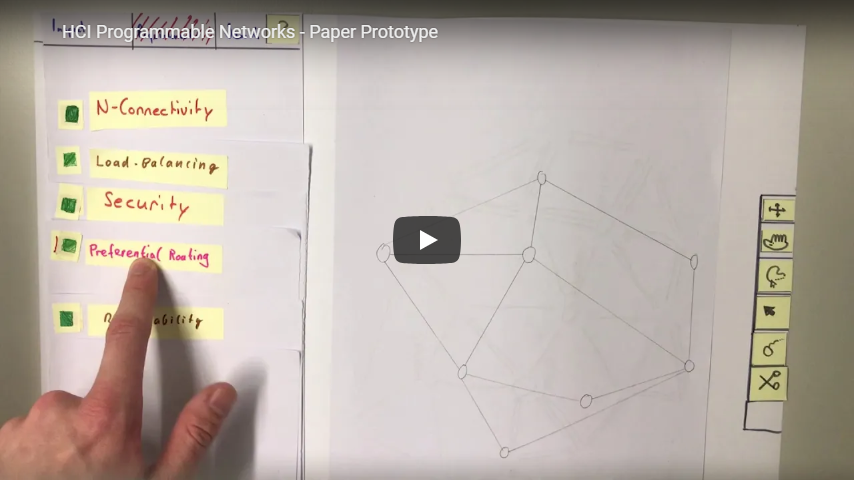 HCI Programmable Networks - Paper Prototype
N-Connectivity
Load-Balancing
Security
Preferential Routing